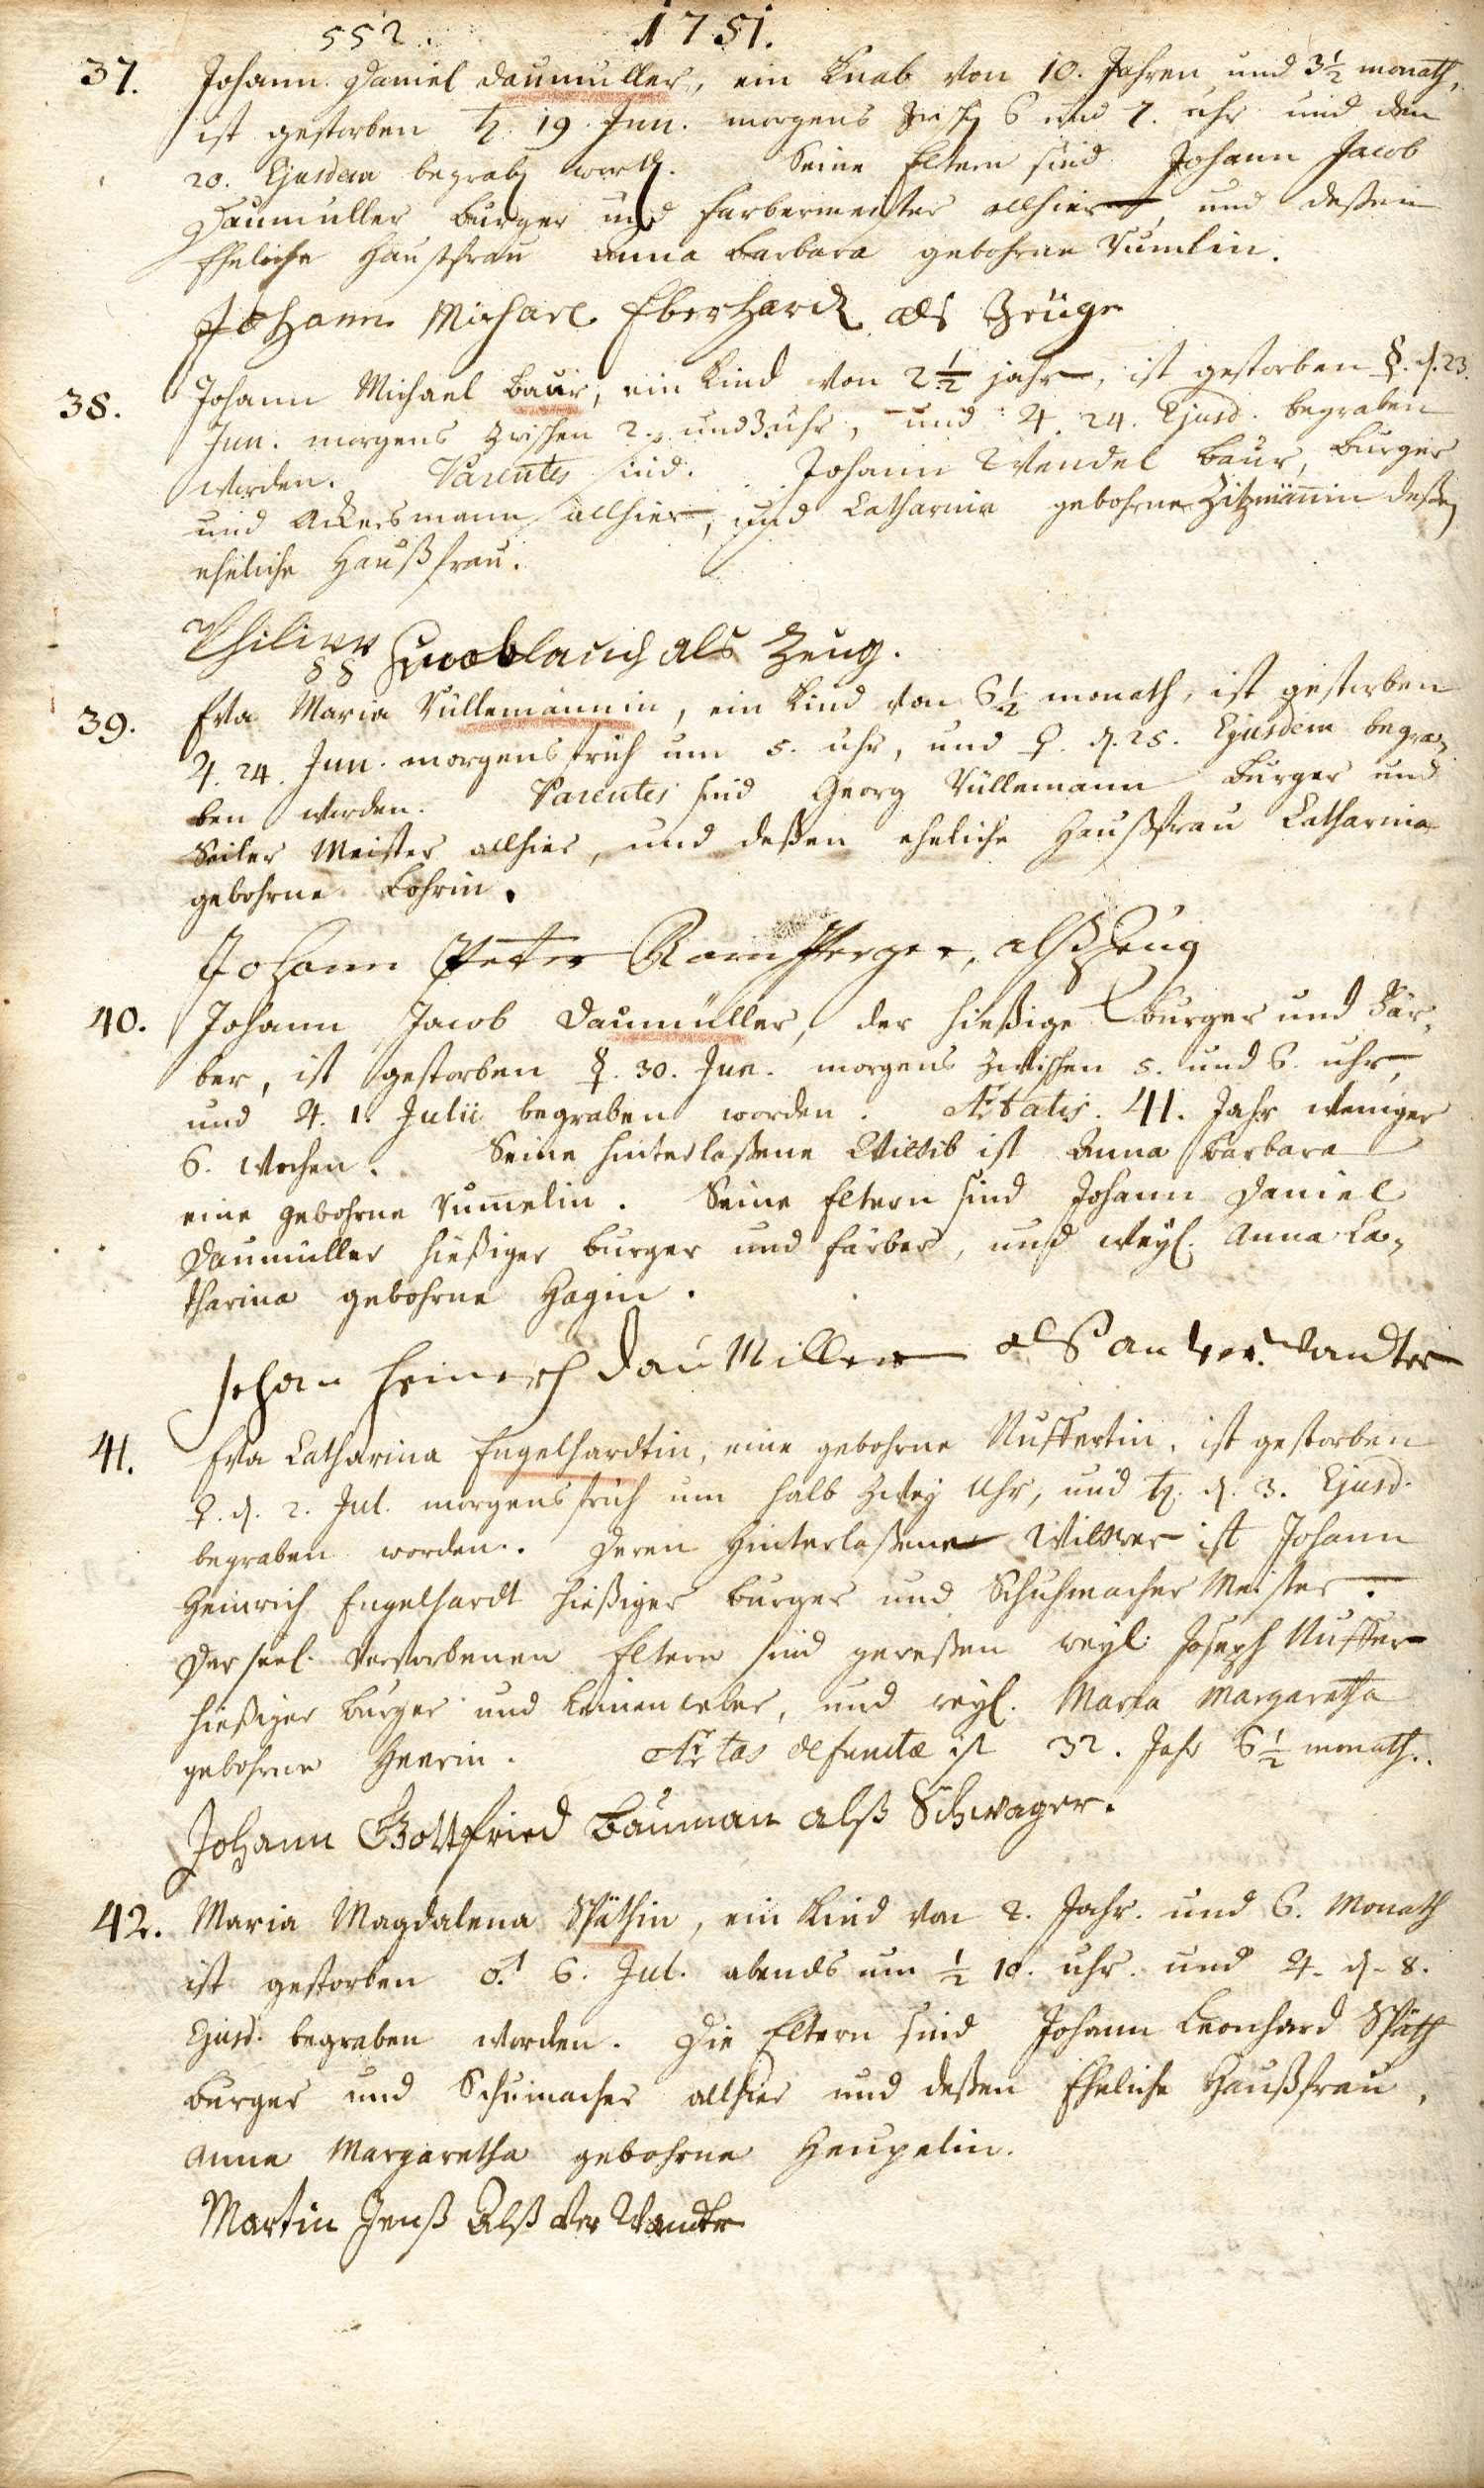 552. 1751.
37. Johann Daniel Daumüller, ein Knab von 10. Jahren und 3½ monath,
ist gestorben ♄. 19. Jun. morgens zwisch 6 und 7. uhr und den
20. Ejusdem begrab word. Seine Eltern sind Johann Jacob
Daumüller burger und Farbermeister allhier, und deßen
Eheliche Haußfrau Anna Barbara gebohrne Rümlin.
Johann Michael Eberhardt als Zeuge
38. Johann Michael Baur, ein Kind von 2½ jahr, ist gestorben ☿. d. 23.
Jun. morgens zwischen 2. und 3. uhr, und ♃. 24. Ejusd. begraben
worden. Parentes sind. Johann Wendel Baur, burger
und Ackersmann allhier, und Catharina gebohrne Zitzmännin deßen
eheliche Haußfrau.
Philipp Knoblauch als Zeug.
39. Eva Maria Vüllemännin, ein Kind von 6½ monath, ist gestorben
♃. 24. Jun. morgens früh um 5. uhr, und ♀. d. 25. Ejusdem begra„
ben worden. Parentes sind Georg Vüllemann burger und
Seiler Meister allhier, und deßen eheliche Haußfrau Catharina
gebohrne Lohrin.
Johann Peter Ramsperger, alß Zeug
40. Johann Jacob Daumüller, der hießige burger und Fär„
ber, ist gestorben ☿. 30. Jun. morgens zwischen 5. und 6. uhr,
und ♃. 1. Julii begraben worden. Ætatis. 41. Jahr weniger
6. wochen. Seine hinterlaßene Wittib ist Anna Barbara
eine gebohrne Rümelin. Seine Eltern sind Johann Daniel
Daumüller hießiger burger und färber, und weyl. Anna Ca„
tharina gebohrne Hagin.
Johan Heinrich DauMiller alß an ver. wandter
41. Eva Catharina Engelhardtin, eine gebohrne Nufferin, ist gestorben
♀. d. 2. Jul. morgens früh um halb zwey Uhr, und ♄. d. 3. Ejusd.
begraben worden. Deren Hinterlaßener Wittwer ist Johann
Heinrich Engelhardt hießiger burger und Schuhmacher Meister.
Der seel. Verstorbenen Eltern sind geweßen weyl. Joseph Nuffer
hießiger burger und Leinenweber, und weyl. Maria Margaretha
gebohrne Heerin. Ætas defunctæ ist 32. Jahr 6½ monath.
Johann Gottfried Bauman alß Schwager.
42. Maria Magdalena Späthin, ein Kind von 2. Jahr. und 6. Monath
ist gestorben ♂. 6. Jul. abends um ½ 10. uhr. und ♃. d. 8.
Ejusd. begraben worden. Die Eltern sind Johann Leonhard Späth
burger und Schumacher allhier und deßen Eheliche Haußfrau,
Anna Margaretha gebohrne Heupelin.
Martin Jenß Alß ver Wandter